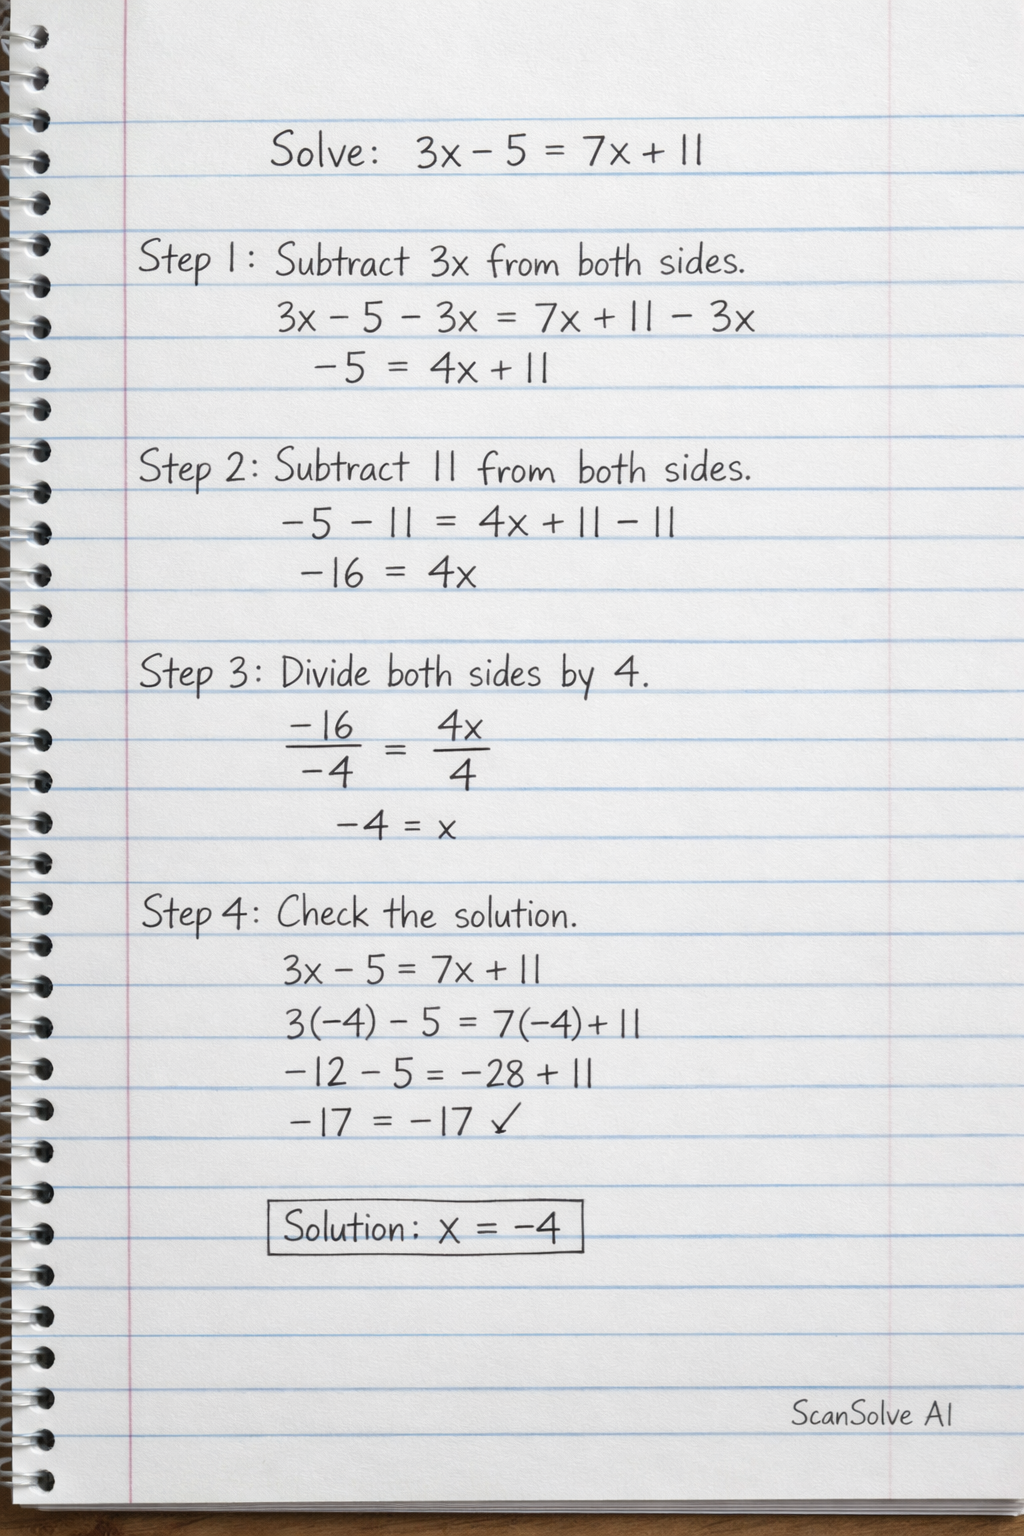 Solve: 3x - 5 = 7x + 11
Step 1: Subtract 3x from both sides.
3x - 5 - 3x = 7x + 11 - 3x
-5 = 4x + 11
Step 2: Subtract 11 from both sides.
-5 - 11 = 4x + 11 - 11
-16 = 4x
Step 3: Divide both sides by 4.
-16/-4 = 4x/4
-4 = x
Step 4: Check the solution.
3x - 5 = 7x + 11
3(-4) - 5 = 7(-4) + 11
-12 - 5 = -28 + 11
-17 = -17 ✓
Solution: x = -4
ScanSolve AI